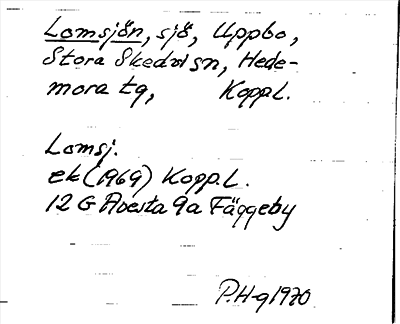 Lomsjön, sjö, Uppbo,
Stora Skedvi sn, Hede-
mora tg, Koppl.
Lomsj.
ek (1969) Kopp.l.
12 G Avesta 9a Fäggeby
P.H-g 1970